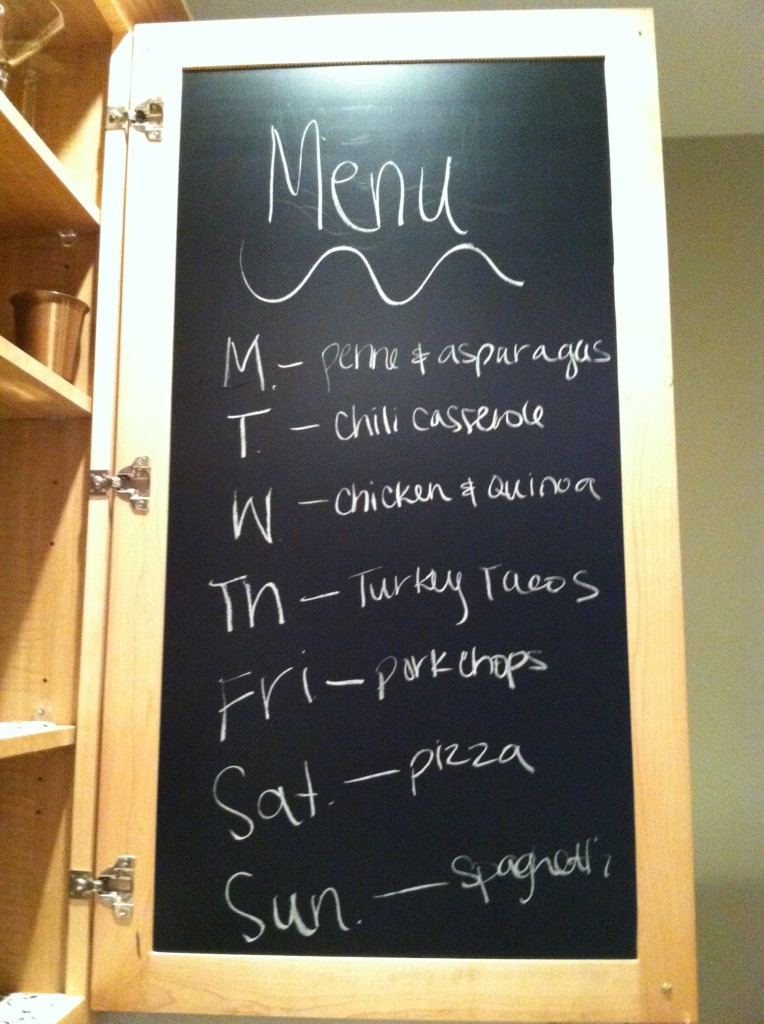 Menu
M. - penne & asparagus
T. - chili casserole
W - chicken & quinoa
Th - Turkey Tacos
Fri - pork chops
Sat. - pizza
Sun. - spaghetti